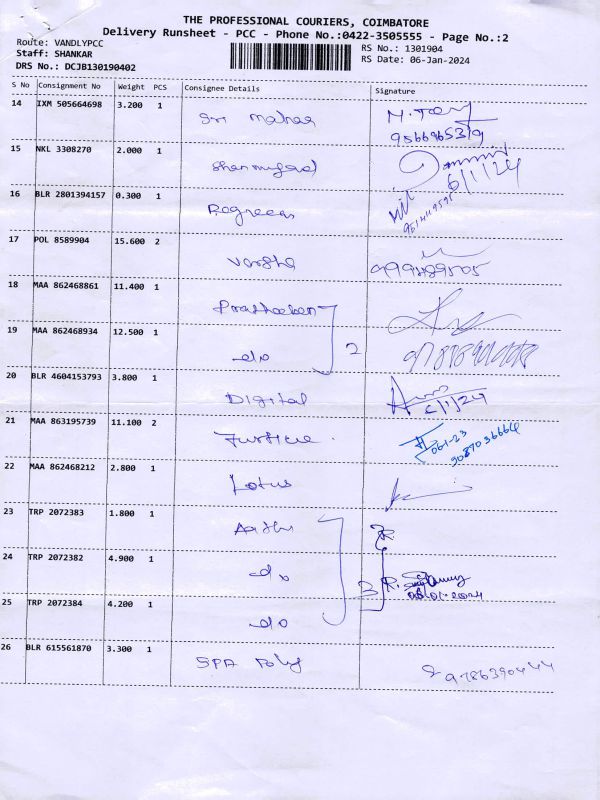 THE PROFESSIONAL COURIERS, COIMBATORE
Delivery Runsheet - PCC - Phone No.:0422-3505555 - Page No.:2
Route: VANDLYPCC RS No.: 1301904
Staff: SHANKAR RS Date: 06-Jan-2024
DRS No.: DCJB130190402
S No Consignment No Weight PCS Consignee Details Signature
14 IXM 505664698 3.200 1 Sri
15 NKL 3308270 2.000 1
6/1/24
16 BLR 2801394157 0.300 1
17 POL 8589904 15.600 2 Varsha
18 MAA 862468861 11.400 1
19 MAA 862468934 12.500 1 do 2
20 BLR 4604153793 3.800 1 Digital
6/1/24
21 MAA 863195739 11.100 2
06-1-23
9087036664
22 MAA 862468212 2.800 1 Lotus
23 TRP 2072383 1.800 1
24 TRP 2072382 4.900 1 do 3
25 TRP 2072384 4.200 1 do
26 BLR 615561870 3.300 1 SPA Poly 9786390444